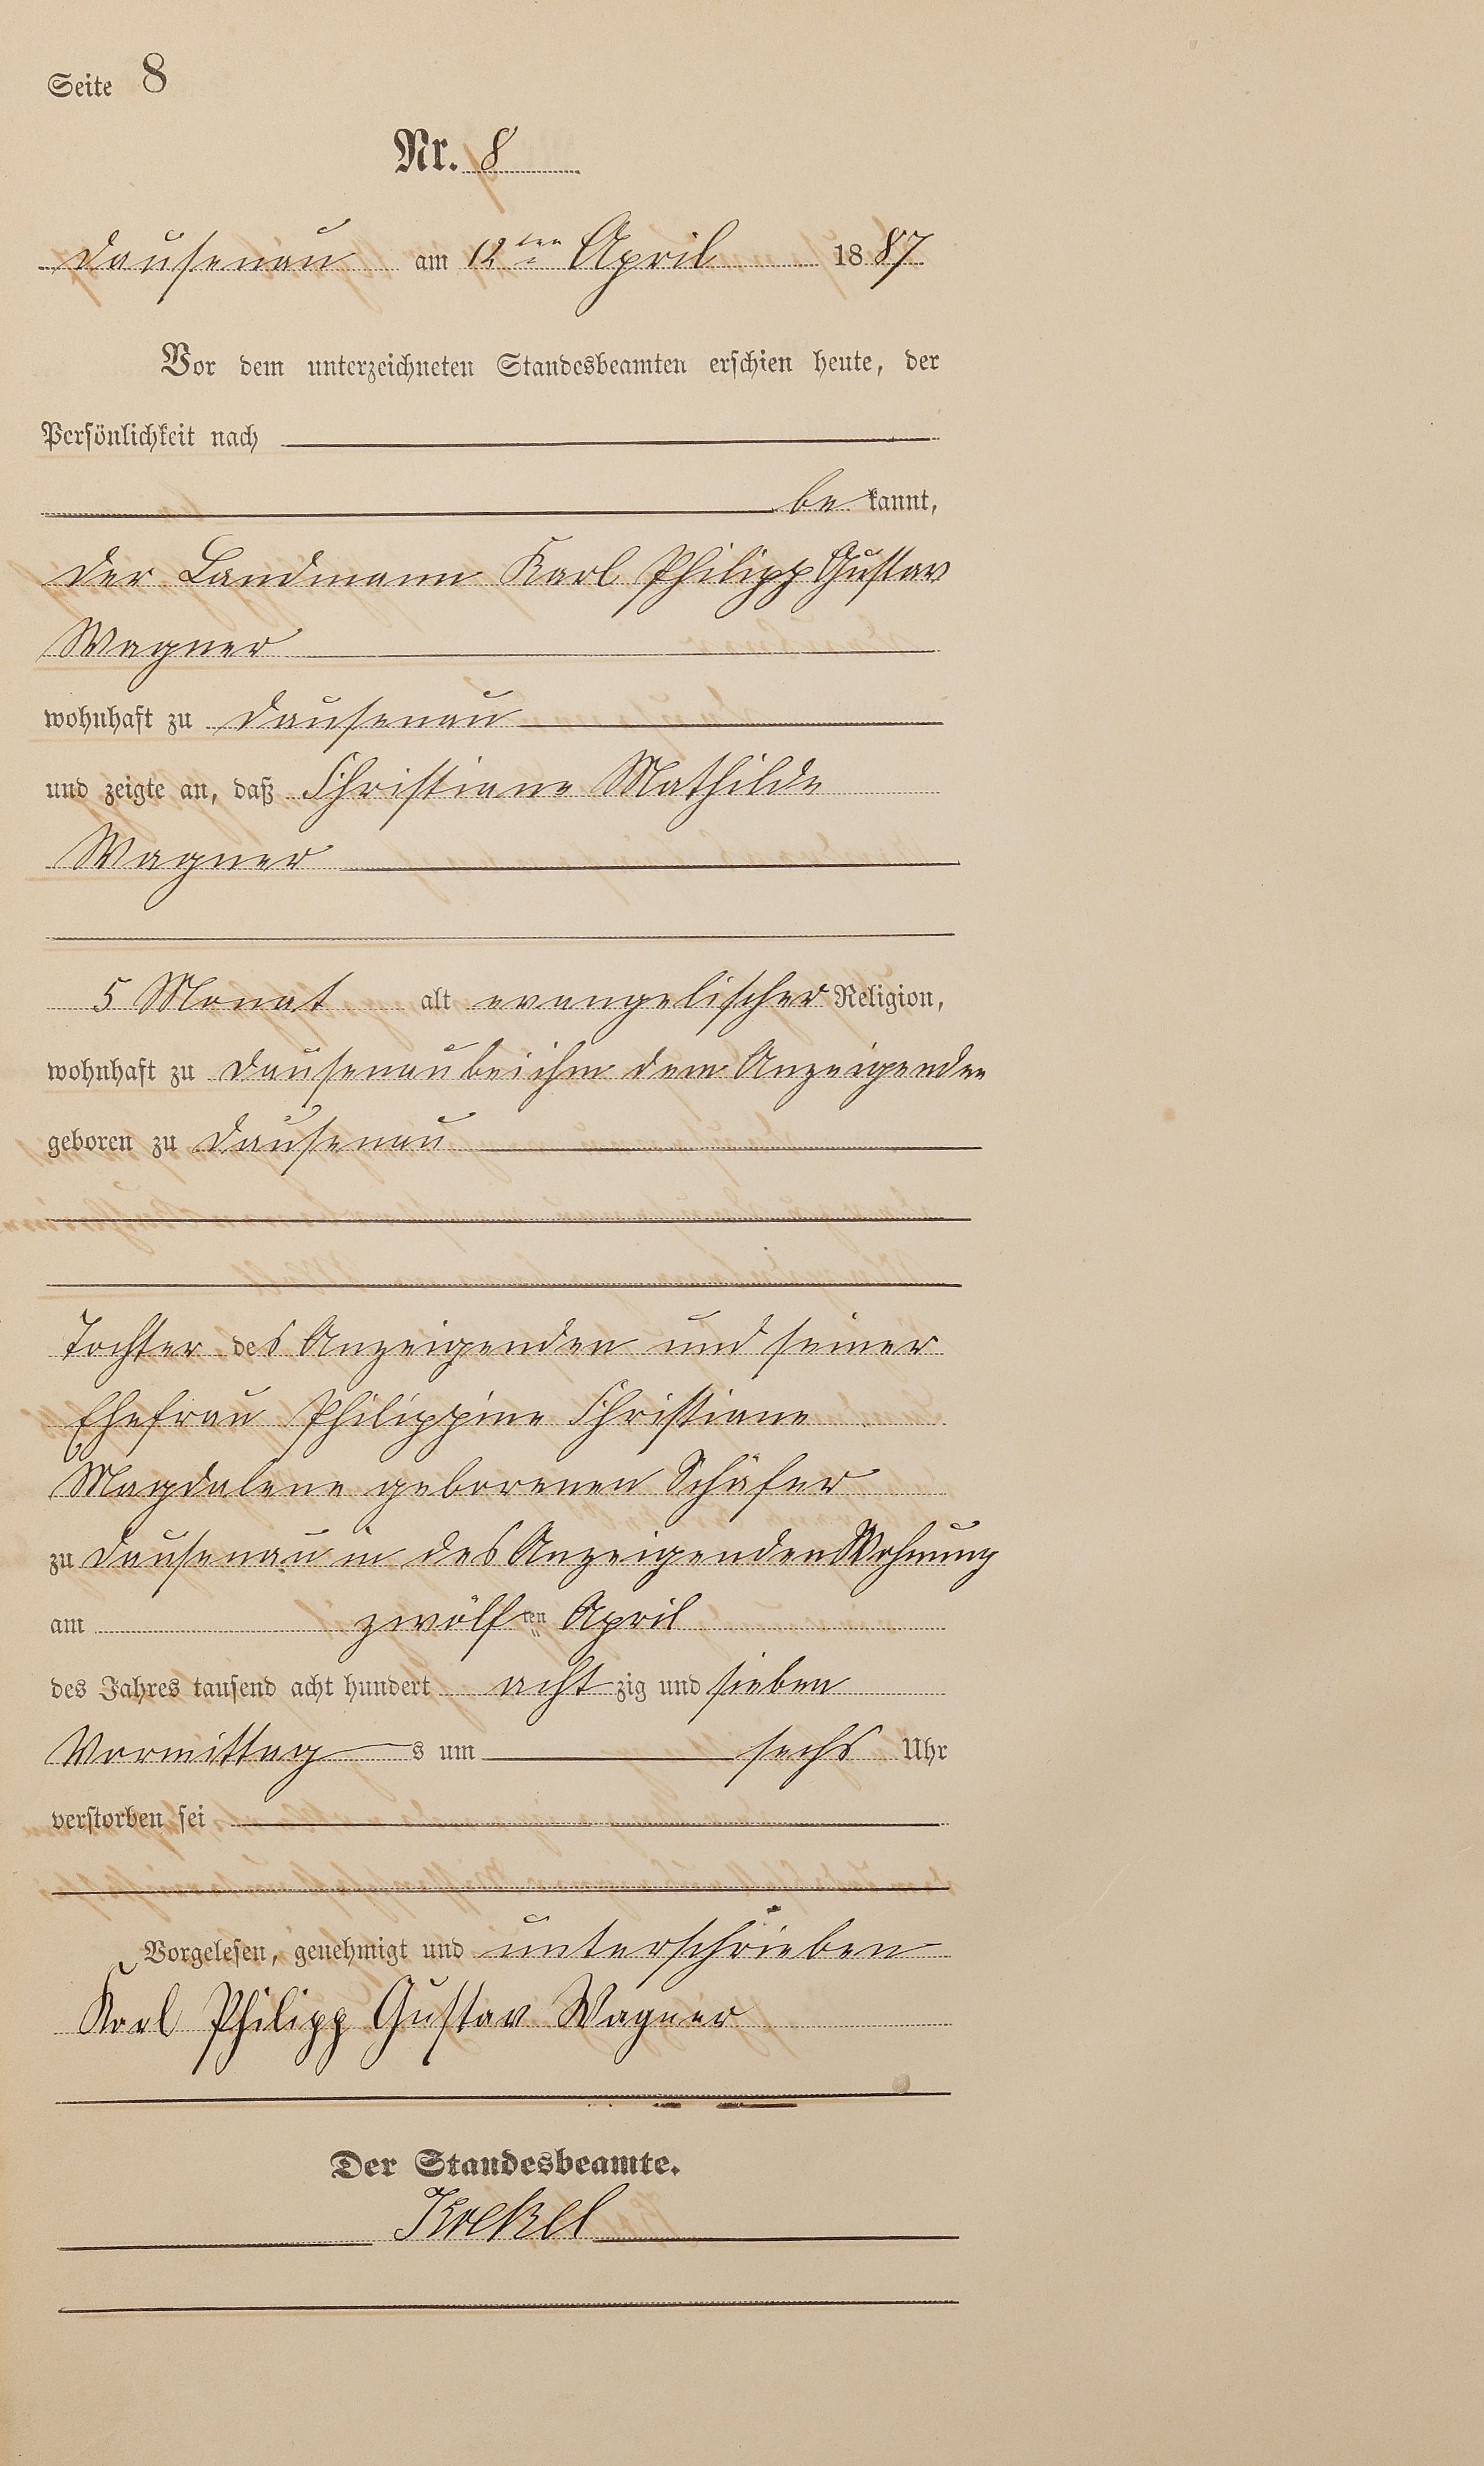 Seite 8
Nr. 8
Dausenau am 12ten April 1887
Vor dem unterzeichneten Standesbeamten erschien heute, der
Persönlichkeit nach
be kannt,
der Landmann Karl Philipp Gustav
Wagner
wohnhaft zu Dausenau
und zeigte an, daß Christiane Mathilde
Wagner
5 Monat alt evangelischer Religion,
wohnhaft zu Dausenau bei ihm dem Anzeigenden
geboren zu Dausenau
Tochter des Anzeigenden und seiner
Ehefrau Philippine Christiane
Magdalene geborenen Schäfer
zu Dausenau in des Anzeigenden Wohnung
am zwölften April
des Jahres tausend acht hundert acht zig und sieben
Vormittag s um sechs Uhr
verstorben sei
Vorgelesen, genehmigt und unterschrieben
Karl Philipp Gustav Wagner
Der Standesbeamte.